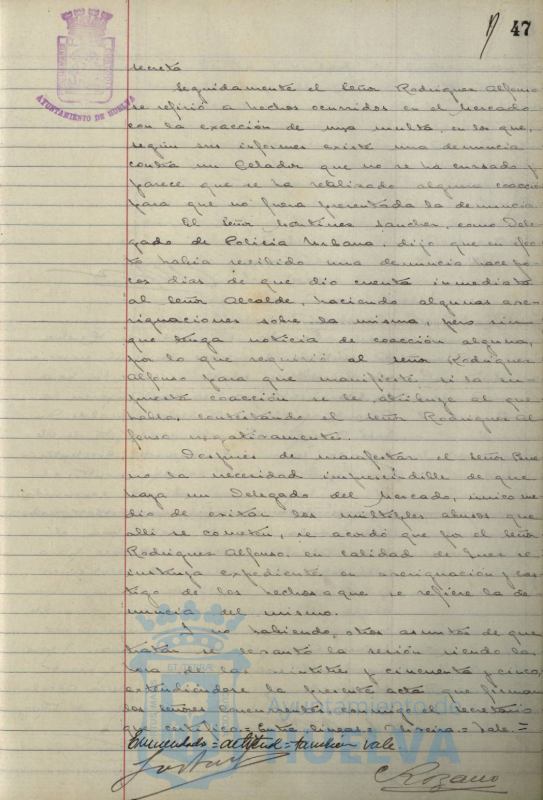 47
AYUNTAMIENTO DE HUELVA
secreta
Seguidamente el Señor Rodriguez Alfonso
se refirió a hechos ocurridos en el Mercado
con la exacción de una multa, en los que,
según sus informes existe una denuncia
contra un Celador que no se ha cursado y
parece que se ha realizado alguna coacción
para que no fuera presentada la denuncia.
El Señor Martinez Sanchez, como Dele-
gado de Policia Urbana, dijo que en efec-
to habia recibido una denuncia hace po-
cos dias de que dio cuenta inmediata
al Señor Alcalde, haciendo algunas ave-
riguaciones sobre la misma, pero sin
que tenga noticia de coacción alguna,
por lo que requirió al señor Rodriguez
Alfonso para que manifieste si la su-
puesta coacción se le atribuye al que
habla, contestando el Señor Rodriguez Al-
fonso negativamente.
Después de manifestar el Señor
no la necesidad imprescindible de que
haya un Delegado del Mercado, unico me-
dio de evitar los multiples abusos que
alli se cometen, se acordó que por el Señor
Rodriguez Alfonso, en calidad de Juez se
instruya expediente en averiguación y cas-
tigo de los hechos a que se refiere la de-
nuncia del mismo.
Y no habiendo otros asuntos de que
tratar se levantó la sesión siendo las
hora de las veintitres y cincuenta y cinco,
extendiéndose la presente acta que firman
los señores concurrentes conmigo el Secretario
que certifico.= Entre lineas = = Vale =
Enmendado = actitud = tambien vale.
Ayuntamiento de
HUELVA